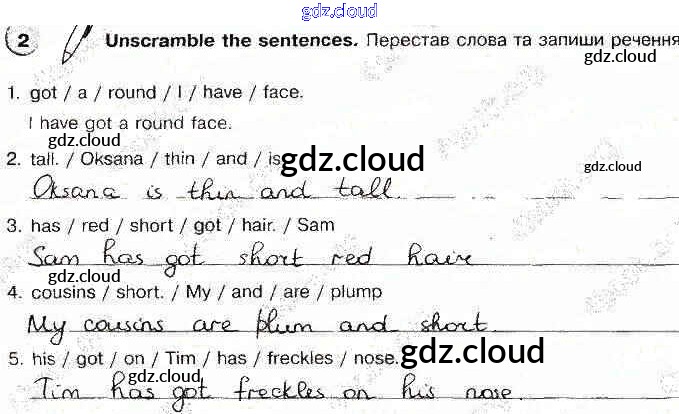 gdz.cloud
2 Unscramble the sentences. Перестав слова та запиши речення
gdz.cloud
1. got / a / round / I / have / face.
I have got a round face.
gdz.cloud
2. tall. / Oksana / thin / and / is
gdz.cloud
Oksana is thin and tall.
3. has / red / short / got / hair. / Sam
gdz.cloud
Sam has got short red haire
gdz.cloud
4. cousins / short. / My / and / are / plump
My cousins are plum and short.
5. his / got / on / Tim / has / freckles / nose.
gdz.cloud
gdz.cloud
Tim has got freckles on his nose.